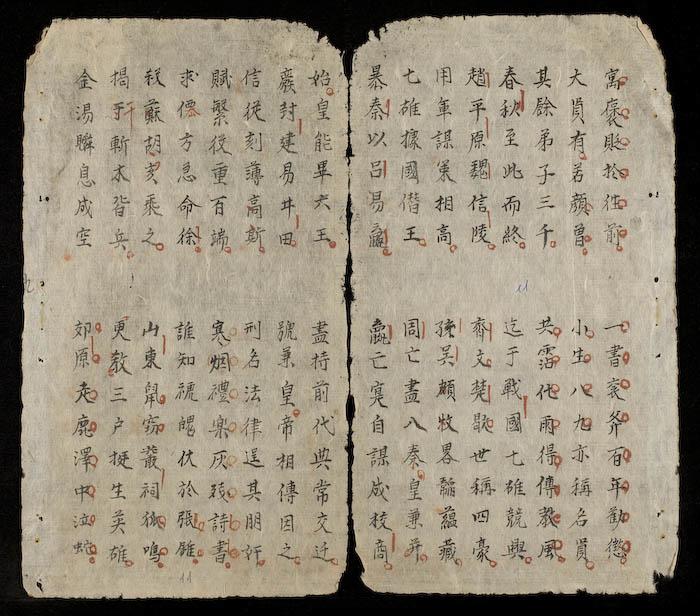 寓褒貶於往前
一書袞斧百年勸懲
大員有若顏曾
小生八九亦稱名員
其餘弟子三千
共霑化雨得傳教風
春秋至此而終
迄于戰國七雄競興
趙平原魏信陵
齊文楚歇世稱四豪
用軍謀策相高
孫吳頗牧畧韜蘊藏
七雄據國僭王
周亡盡入秦皇兼并
暴秦以呂易嬴
嬴亡寔自謀成狡商
始皇能畢六王
盡持前代典常交迁
廢封建易井田
號兼皇帝相傳因之
信從刻薄高斯
刑名法律逞其朋奸
賦繁役重百端
寒烟禮樂灰殘詩書
求僊方急命徐
誰知魄伏於張
殺蘇胡亥乘之
山東鼠竊叢祠狐鳴
揭竿斬木皆兵
更教三户挺生英雄
金湯瞬息成空
郊原走鹿澤中泣蛇